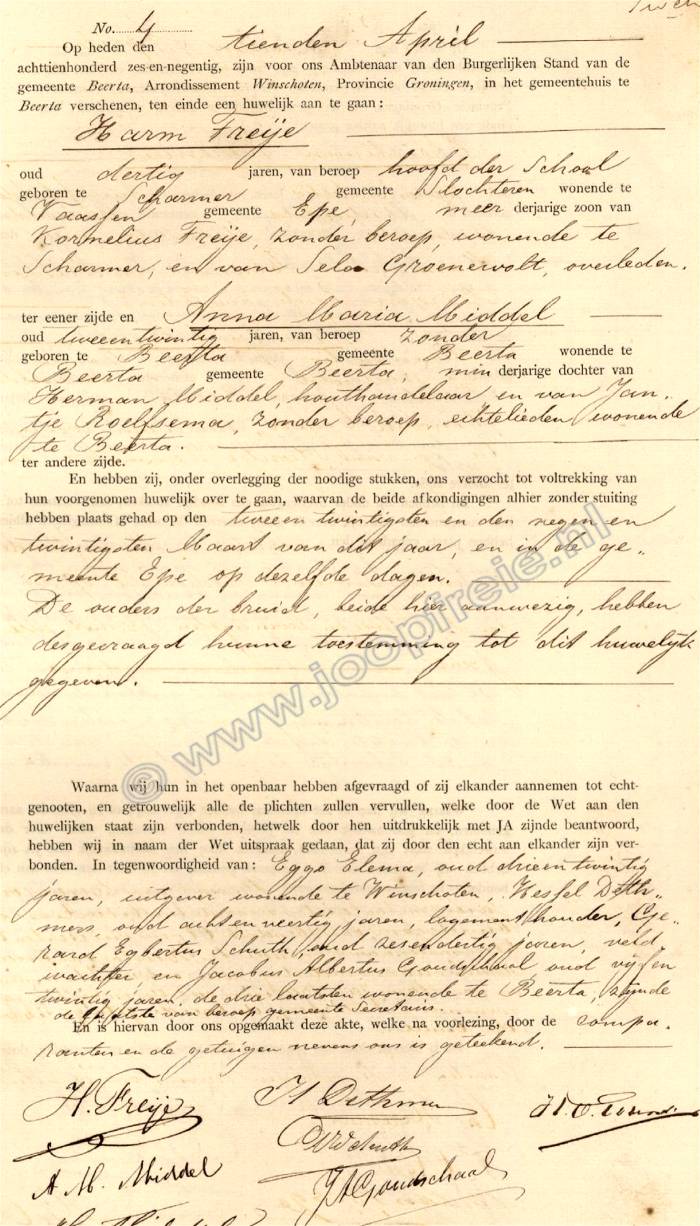 No. 4
Op heden den tienden April
achttienhonderd zes-en-negentig, zijn voor ons Ambtenaar van den Burgerlijken Stand van de
gemeente Beerta, Arrondissement Winschoten, Provincie Groningen, in het gemeentehuis te
Beerta verschenen, ten einde een huwelijk aan te gaan:
Harm Freije
oud dertig jaren, van beroep hoofd der School
geboren te Scharmer gemeente Slochteren wonende te
Vaassen gemeente Epe, meer derjarige zoon van
Kornelius Freije, zonder beroep, wonende te
Scharmer, en van Groenewolt, overleden.
ter eener zijde en Anna Maria Middel
oud tweeentwintig jaren, van beroep zonder
geboren te Beerta gemeente Beerta wonende te
Beerta gemeente Beerta, min derjarige dochter van
Herman Middel, houthandelaar en van Jan-
tje Roelfsema, zonder beroep, echtelieden, wonende
te Beerta.
ter andere zijde.
En hebben zij, onder overlegging der noodige stukken, ons verzocht tot voltrekking van
hun voorgenomen huwelijk over te gaan, waarvan de beide afkondigingen alhier zonder stuiting
hebben plaats gehad op den tweeen twintigsten en den negen en
twintigsten Maart van dit jaar, en in de ge-
meente Epe op dezelfde dagen.
De ouders der bruid, beide hier aanwezig, hebben
desgevraagd hunne toestemming tot dit huwelijk
gegeven.
© www.joopfreie.nl
Waarna wij hun in het openbaar hebben afgevraagd of zij elkander aannemen tot echt-
genooten, en getrouwelijk alle de plichten zullen vervullen, welke door de Wet aan den
huwelijken staat zijn verbonden, hetwelk door hen uitdrukkelijk met JA zijnde beantwoord,
hebben wij in naam der Wet uitspraak gedaan, dat zij door den echt aan elkander zijn ver-
bonden. In tegenwoordigheid van: Eggo Elema, oud drieentwintig
jaren, uitgever wonende te Winschoten, Hessel Deth-
mers, oud achtenveertig jaren, logementhouder, Ge-
rard Egbertus Schuth, oud zesendertig jaren, veld-
wachter en Jacobus Albertus Goudschaal, oud vijfen
twintig jaren, de drie laatsten wonende te Beerta, zijnde
de van beroep gemeente Secretaris.
En is hiervan door ons opgemaakt deze akte, welke na voorlezing, door de compa-
ranten en de getuigen nevens ons is geteekend.
H. Freije
H Dethmers
Schuth
A M. Middel
JA Goudschaal